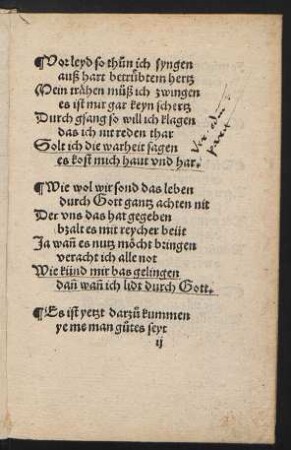 ¶Vor leyd so thůn ich syngen
auß hart betrůbtem hertz
Mein trähen můß ich zwingen
es ist mir gar keyn schertz
Durch gsang so will ich klagen
das ich nit reden thar
Solt ich die warheit sagen
es kost mich haut vnd har.
¶Wie wol wir sond das leben
durch Gott gantz achten nit
Der vns das hat gegeben
bzalt es mit reycher beüt
Ja wañ es nutz möcht bringen
veracht ich alle not
Wie künd mir bas gelingen
dañ wañ ich lidt durch Gott.
¶Es ist yetzt darzů kummen
ye me man gůtes seyt
ij